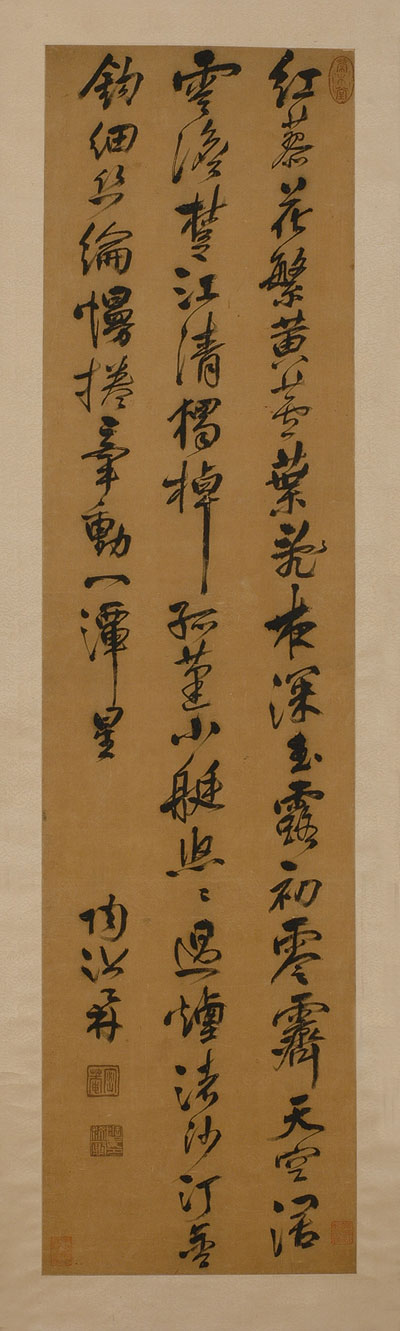 紅蓼花繁黃芦葉亂夜深玉露初零霽天空闊
雲澹楚江清獨棹孤蓬小艇悠〻過煙渚沙汀金
鈎細絲綸慢捲牽動一潭星
陶